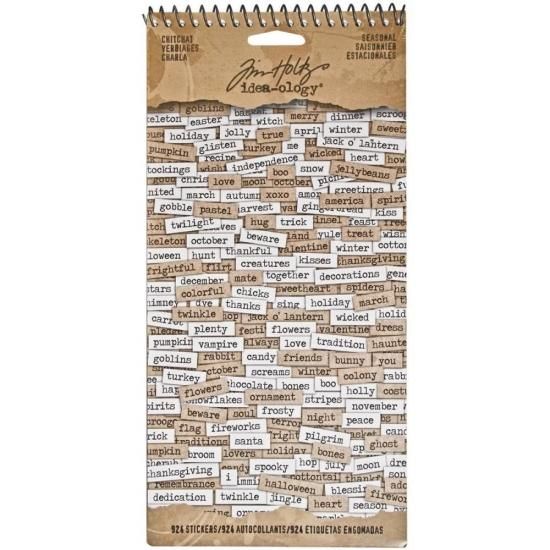 CHITCHAT
VERBIAGES
CHARLA
SEASONAL
SAISONNIER
ESTACIONALES
Tim Holtz
idea-ology®
goblins merry dinner
easter witch april winter sweet
holiday jolly true jack o' lantern
pumpkin glisten turkey me wicked heart
wish independence snow jellybeans
boo
love moon october greetings
march autumn xoxo amor america spirit
gobble pastel harvest
twilight hug trick treat
skeleton october beware valentine winter cotton
welcome hunt thankful kisses thanksgiving
creatures
frightful flirt mate together decorations
december sweetheart spiders
colorful chicks
dye thanks sing holiday march
twinkle hop jack o' lantern wicked
carpet plenty festive flowers valentine dress
pumpkin vampire always love tradition
goblins rabbit candy friends bunny you
turkey screams winter colony rabbit
flowers chocolate bones boo holly
snowflakes ornament stripes november
beware soul frosty night peace
flag fireworks
traditions santa pilgrim ghost
pumpkin broom lovers holiday bones
spooky hop july moon
thanksgiving i
remembrance halloween
dedication twinkle jingle heart snow
924 STICKERS/924 AUTOCOLLANTS/924 ETIQUETAS ENGOMADAS